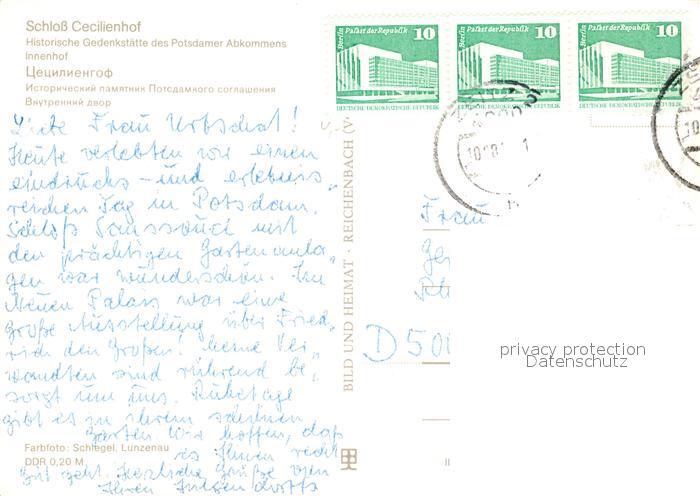 Schloß Cecilienhof
Historische Gedenkstätte des Potsdamer Abkommens
Innenhof
Цецилиенгоф
Исторический памятник Потсдамного соглашения
Внутренний двор
Berlin Palast der Republik 10
DEUTSCHE DEMOKRATISCHE REPUBLIK
Berlin Palast der Republik 10
DEUTSCHE DEMOKRATISCHE REPUBLIK
Berlin Palast der Republik 10
DEUTSCHE DEMOKRATISCHE REPUBLIK
Liebe Frau Urbschat!
Heute verlebten wir einen
eindrucks- und erlebnis„
reichen Tag in Potsdam.
Schloß Sanssouci mit
den prächtigen Gartenanla„
gen war wunderschön. Im
Neuen Palais war eine
große Ausstellung über Fried„
rich den Großen! Meine Ver„
wandten sind rührend be„
sorgt um uns. Ruhetage
gibt es in ihrem schönen
Garten Wir hoffen, daß
es Ihnen recht
gut geht. Herzliche Grüße von
Ihren
Farbfoto: Schlegel, Lunzenau
DDR 0,20 M
BILD UND HEIMAT · REICHENBACH (V
Frau
D 500
privacy protection
Datenschutz